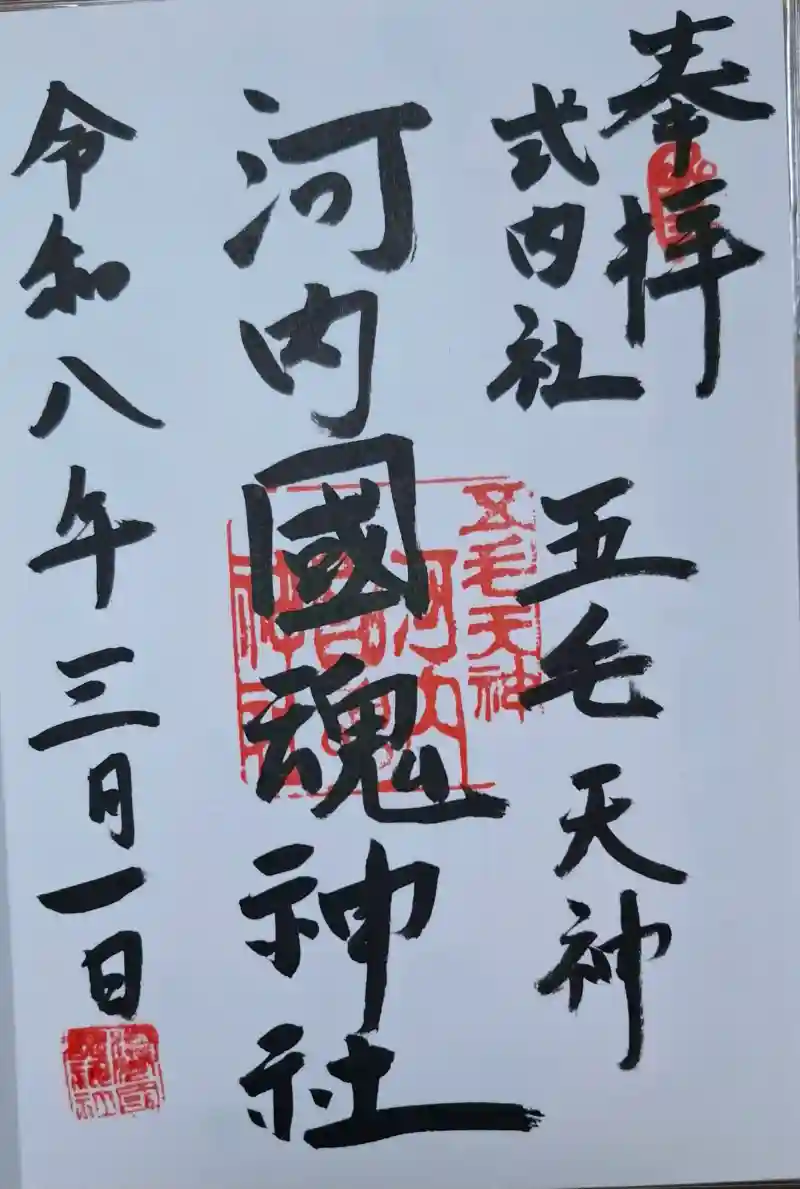 奉拝
式内社 五毛天神
河内國魂神社
令和八年三月一日
五毛天神
河内